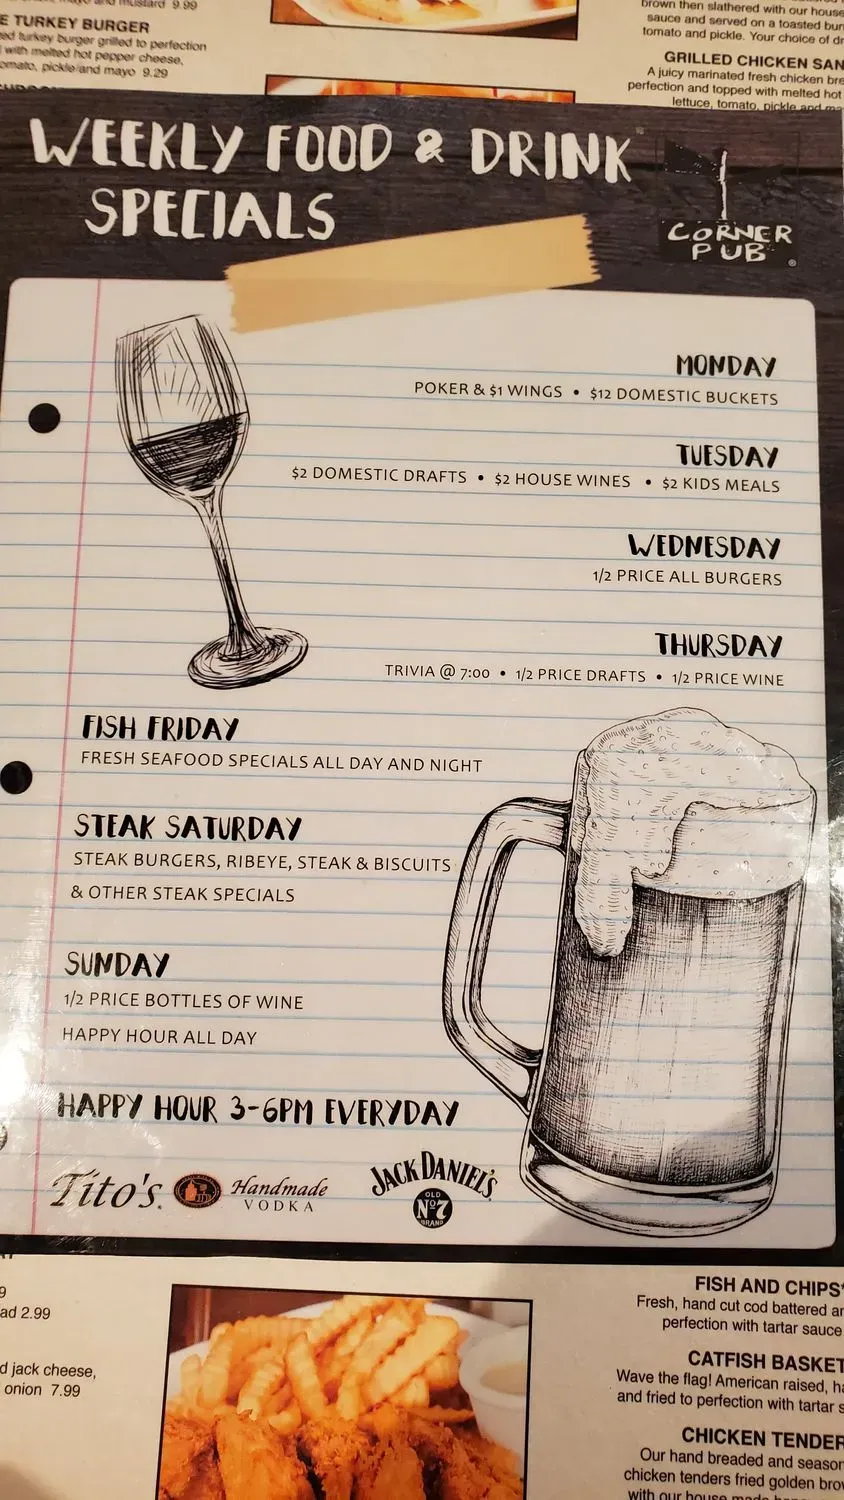 mayo and mustard 9.99
E TURKEY BURGER
ed turkey burger grilled to perfection
with melted hot pepper cheese,
omato, pickle and mayo 9.29
brown then slathered with our house
sauce and served on a toasted bun
tomato and pickle. Your choice of dr
GRILLED CHICKEN SAN
A juicy marinated fresh chicken bre
perfection and topped with melted hot
lettuce, tomato, pickle and ma
WEEKLY FOOD & DRINK
SPECIALS
CORNER
PUB
MONDAY
POKER & $1 WINGS • $12 DOMESTIC BUCKETS
TUESDAY
$2 DOMESTIC DRAFTS • $2 HOUSE WINES • $2 KIDS MEALS
WEDNESDAY
1/2 PRICE ALL BURGERS
THURSDAY
TRIVIA @ 7:00 • 1/2 PRICE DRAFTS • 1/2 PRICE WINE
FISH FRIDAY
FRESH SEAFOOD SPECIALS ALL DAY AND NIGHT
STEAK SATURDAY
STEAK BURGERS, RIBEYE, STEAK & BISCUITS
& OTHER STEAK SPECIALS
SUNDAY
1/2 PRICE BOTTLES OF WINE
HAPPY HOUR ALL DAY
HAPPY HOUR 3-6PM EVERYDAY
Tito's.
Handmade
VODKA
JACK DANIEL'S
OLD
Nº7
BRAND
9
ad 2.99
d jack cheese,
onion 7.99
FISH AND CHIPS*
Fresh, hand cut cod battered an
perfection with tartar sauce
CATFISH BASKET
Wave the flag! American raised, ha
and fried to perfection with tartar s
CHICKEN TENDER
Our hand breaded and season
chicken tenders fried golden brow
with our house made